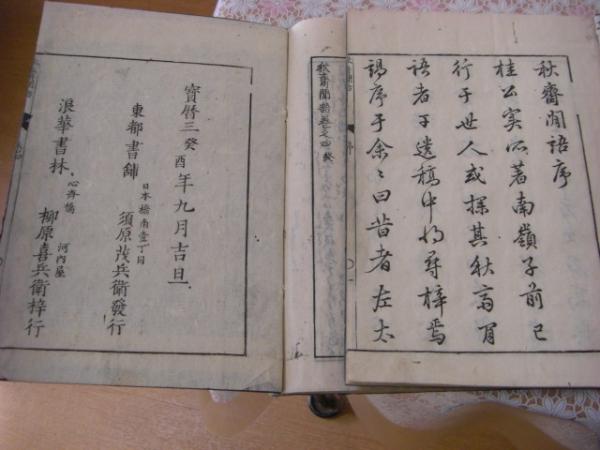 秋齋閒語序
桂公実所著南嶺子前已
行于世人或探其秋斎間
語者于遺稿中将寿梓焉
謁序于余〻曰昔者左太
秋齋間語巻之四終
寶暦三癸酉年九月吉旦
東都書舗
日本橋南壹丁目
須原茂兵衛發行
浪華書林
心斉橋
河内屋
柳原喜兵衛梓行